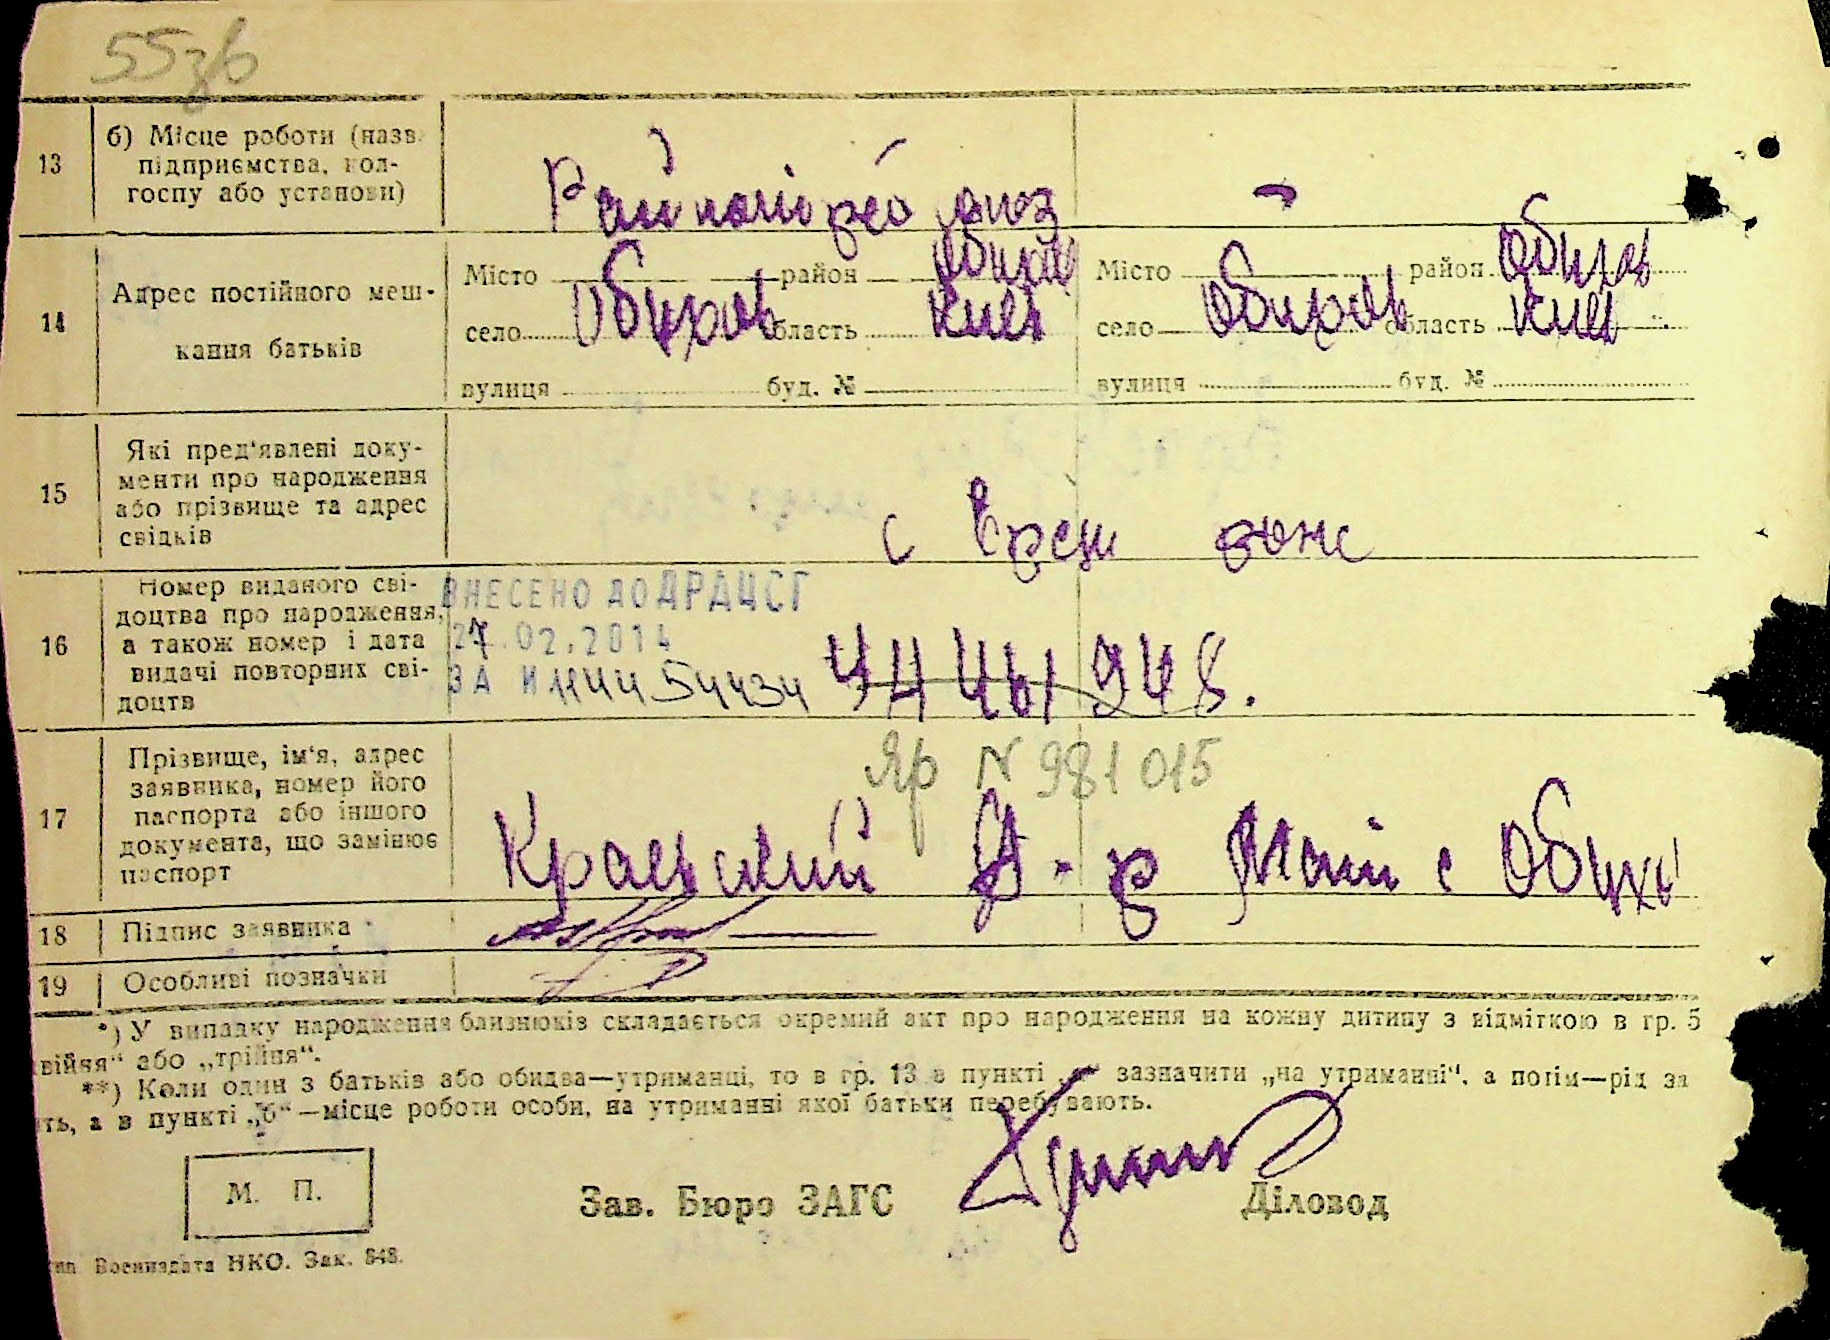 55зв
13
б) Місце роботи (назв.
підприємства, кол-
госпу або установи)
14
Адрес постійного меш-
кання батьків
Місто район
село Обухов область Киев
вулиця буд. №
Місто район Обухов
село Обухов область Киев
вулиця буд. №
15
Які пред'явлені доку-
менти про народження
або прізвище та адрес
свідків
с
16
Номер виданого сві-
доцтва про народження,
а також номер і дата
видачі повторних сві-
доцтв
ВНЕСЕНО ДО ДРАЦСГ
27.02.2014
ЗА №
948.
Яр N 981015
17
Прізвище, ім'я, адрес
заявника, номер його
паспорта або іншого
документа, що замінює
паспорт
Краевский с Обухов
18
Підпис заявника
19
Особливі позначки
*) У випадку народження близнюків складається окремий акт про народження на кожну дитину з відміткою в гр. 5
війня“ або „трійня“.
**) Коли один з батьків або обидва—утриманці, то в гр. 13 в пункті зазначити „на утриманні“, а потім—рід за
ть, а в пункті „б“—місце роботи особи, на утриманні якої батьки перебувають.
М. П.
Зав. Бюро ЗАГС
Діловод
Воениздата НКО. Зак. 848.